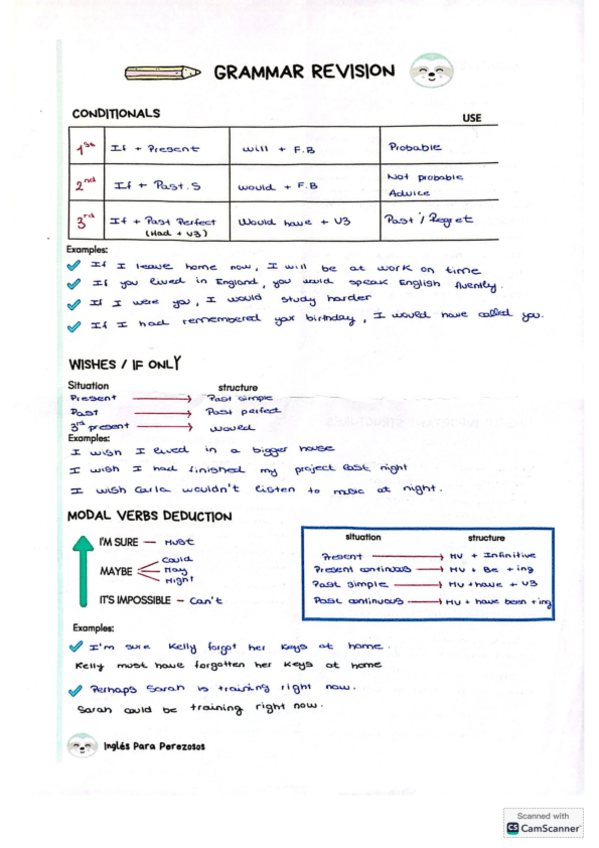 GRAMMAR REVISION
CONDITIONALS
USE
1st If + Present will + F.B Probable
2nd If + Past.S would + F.B Not probable Advice
3rd If + Past Perfect (Had + V3) Would have + V3 Past / Regret
Examples:
If I leave home now, I will be at work on time
If you lived in England, you would speak English fluently.
If I were you, I would study harder
If I had remembered your birthday, I would have called you.
WISHES / IF ONLY
Situation structure
Present Past simple
Past Past perfect
3rd present would
Examples:
I wish I lived in a bigger house
I wish I had finished my project last night
I wish Carla wouldn't listen to music at night.
MODAL VERBS DEDUCTION
I'M SURE — Must
MAYBE Could May Might
IT'S IMPOSSIBLE — Can't
situation structure
Present MV + Infinitive
Present continuous MV + Be + ing
Past simple MV + have + V3
Past continuous MV + have been + ing
Examples:
I'm sure Kelly forgot her keys at home.
Kelly must have forgotten her keys at home
Perhaps Sarah is training right now.
Sarah could be training right now.
Inglés Para Perezosos
Scanned with
CS CamScanner